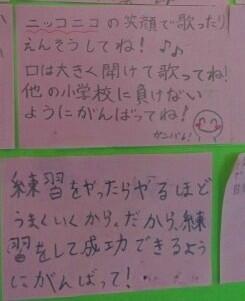 ニッコニコの笑顔で歌ったり
えんそうしてね！♪♪
口は大きく開けて歌ってね！
他の小学校に負けない
ようにがんばってね！
ガンバレ！
練習をやったらやるほど
うまくいくから。だから、練
習をして成功できるよう
にがんばって！